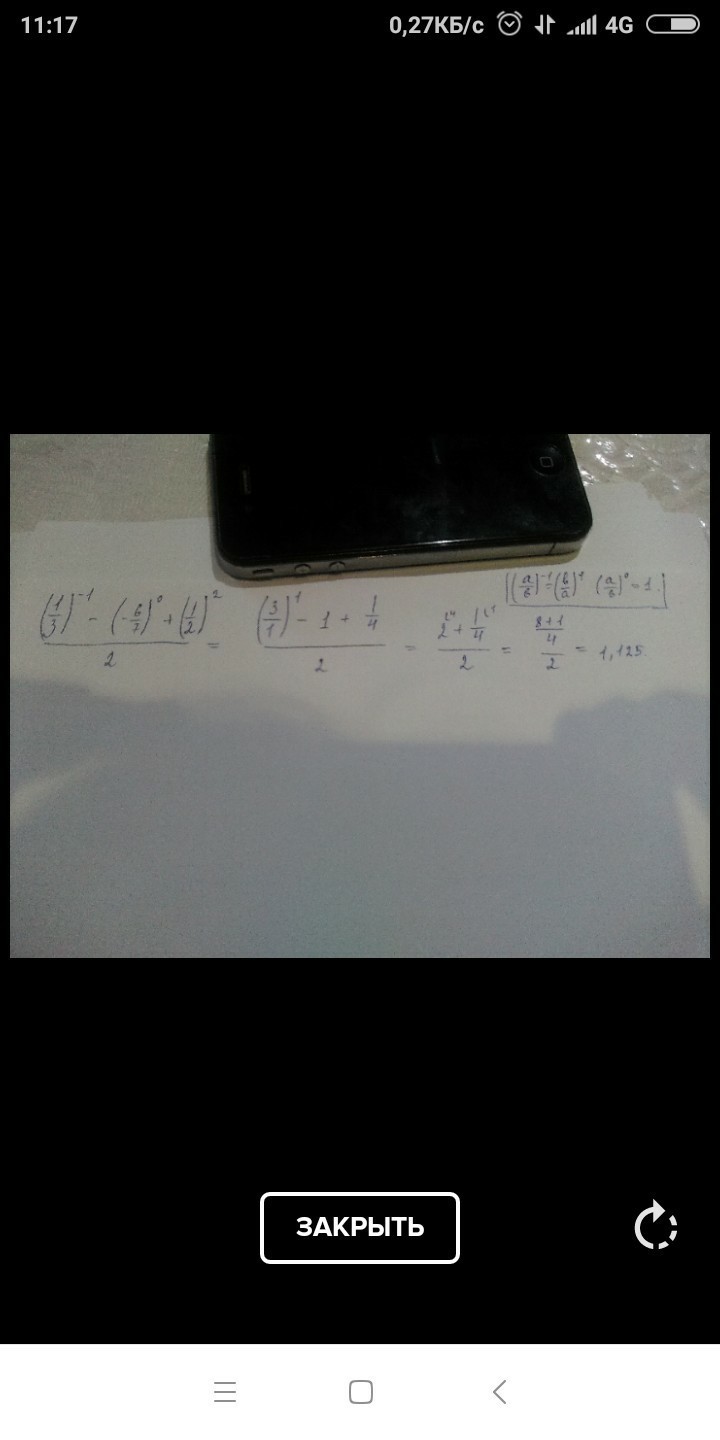 11:17 0,27КБ/с 4G
[(a/b)^-1 = (b/a)^1 (a/b)^0 = 1.]
((1/3)^-1 - (-6/7)^0 + (1/2)^2)/2 = ((3/1)^1 - 1 + 1/4)/2 = (2 + 1/4)/2 = ((8+1)/4)/2 = 1,125.
ЗАКРЫТЬ